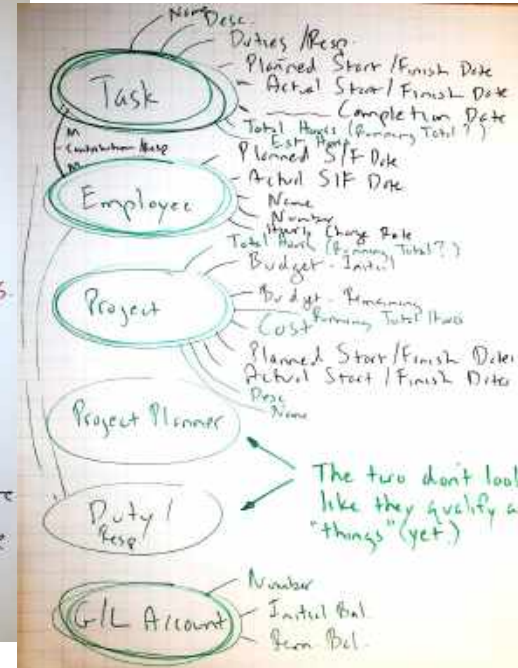 Name
Desc.
Duties / Resp.
Planned Start / Finish Date
Actual Start / Finish Date
Completion Date
Task
Total Hours (Running Total?)
Est Hours
M
Contribution / Resp
M
Planned S/F Date
Actual S/F Date
Employee
Name
Number
Hourly Charge Rate
Total Hours (Running Total?)
Budget - Initial
Project
Budget - Remaining
Cost
Running Total Hours
Planned Start / Finish Dates
Actual Start / Finish Dates
Desc
Name
Project Planner
The two don't look
like they qualify a
"things" (yet)
Duty /
Resp
Number
G/L Account
Initial Bal.
Rem Bal.